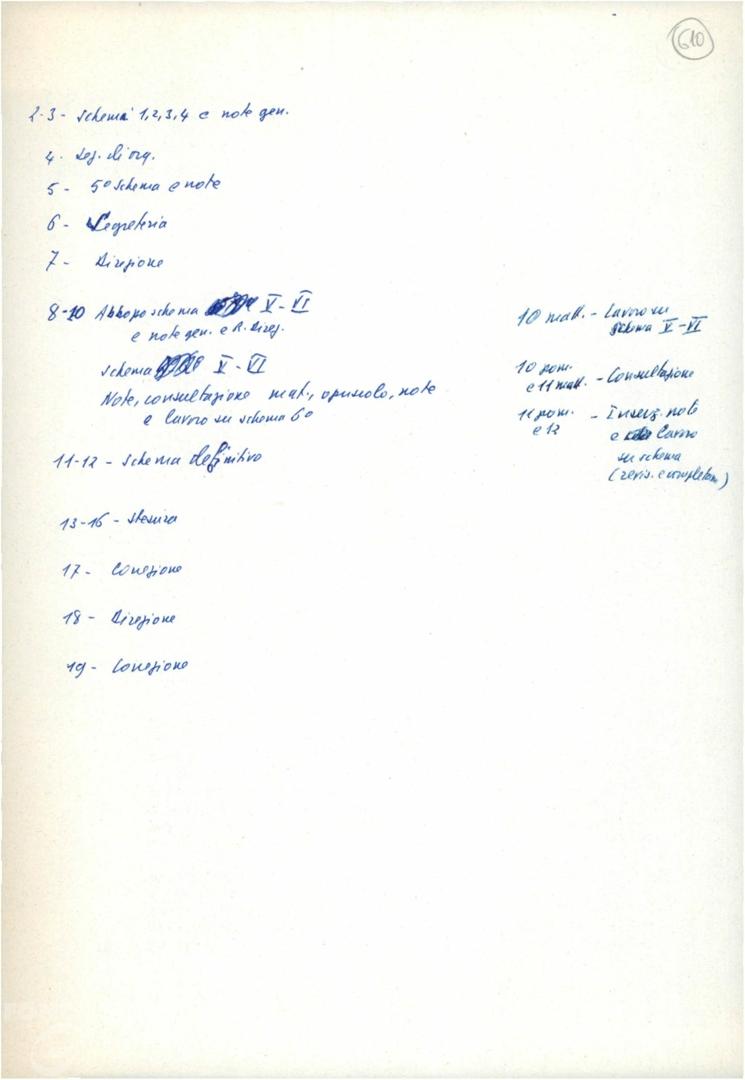 610
2-3 - Schema 1,2,3,4 e note gen.
4. Seg. di org.
5 - 5° Schema e note
6 - Segreteria
7 - Direzione
8-10 Abbozzo schema V-VI
e note gen. e R. Direz.
Schema V-VI
Note, consultazione mat., opuscolo, note
e lavoro su schema 6°
11-12 - Schema definitivo
13-16 - Stesura
17 - Correzione
18 - Direzione
19 - Correzione
10 matt. - Lavoro su
schema V-VI
10 pom.
e 11 matt. - Consultazione
11 pom. - Inserz. note
e 12 e lavoro
su schema
(revis. e completam.)